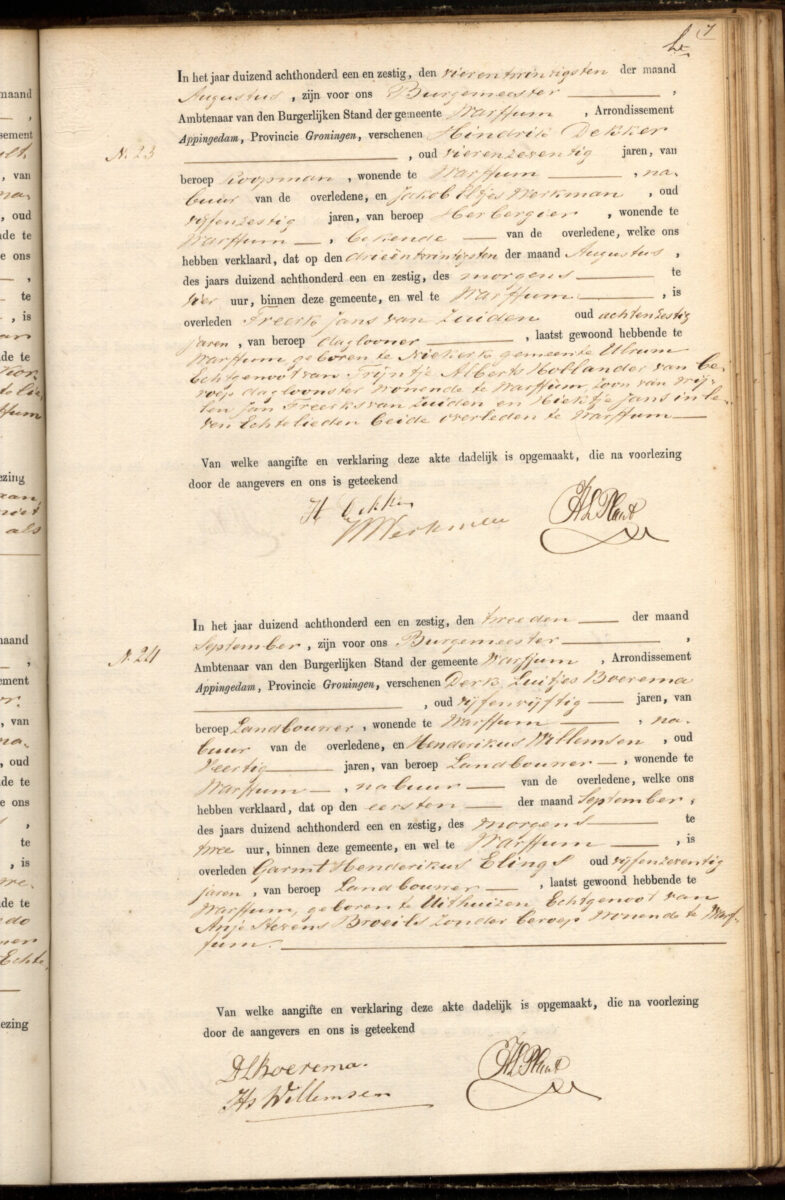 7
In het jaar duizend achthonderd een en zestig, den vierentwintigsten der maand
Augustus, zijn voor ons Burgemeester,
Ambtenaar van den Burgerlijken Stand der gemeente Warffum, Arrondissement
N. 23
Appingedam, Provincie Groningen, verschenen Hindrik Dekker
, oud vierenzeventig jaren, van
beroep Koopman, wonende te Warffum, na-
buur van de overledene, en Jakob Eltjes Werkman, oud
vijfenzestig jaren, van beroep Herbergier, wonende te
Warffum, bekende van de overledene, welke ons
hebben verklaard, dat op den drieentwintigsten der maand Augustus,
des jaars duizend achthonderd een en zestig, des morgens te
vier uur, binnen deze gemeente, en wel te Warffum, is
overleden Freerk Jans van Zuiden oud achtenzestig
jaren, van beroep daglooner, laatst gewoond hebbende te
Warffum, geboren te Niekerk gemeente Ulrum
Echtgenoot van Trijntje Alberts Hollander van be-
roep dagloonster wonende te Warffum, Zoon van wij-
len Jan Freerks van Zuiden en Hiektje Jans in le-
ven Echtelieden beide overleden te Warffum
Van welke aangifte en verklaring deze akte dadelijk is opgemaakt, die na voorlezing
door de aangevers en ons is geteekend
H Dekker
Werkman
Plaat
In het jaar duizend achthonderd een en zestig, den tweeden der maand
September, zijn voor ons Burgemeester,
N. 24
Ambtenaar van den Burgerlijken Stand der gemeente Warffum, Arrondissement
Appingedam, Provincie Groningen, verschenen Derk Luitjes Boerema
, oud vijfenvijftig jaren, van
beroep Landbouwer, wonende te Warffum, na-
buur van de overledene, en Henderikus Willemsen, oud
Veertig jaren, van beroep Landbouwer, wonende te
Warffum, nabuur van de overledene, welke ons
hebben verklaard, dat op den eersten der maand September,
des jaars duizend achthonderd een en zestig, des morgens te
twee uur, binnen deze gemeente, en wel te Warffum, is
overleden Garmt Henderikus Elings oud vijfenzeventig
jaren, van beroep Landbouwer, laatst gewoond hebbende te
Warffum, geboren te Uithuizen Echtgenoot van
Anje Stevens Broeils zonder beroep wonende te Warf-
fum.
Van welke aangifte en verklaring deze akte dadelijk is opgemaakt, die na voorlezing
door de aangevers en ons is geteekend
DLBoerema.
Hs Willemsen
Plaat